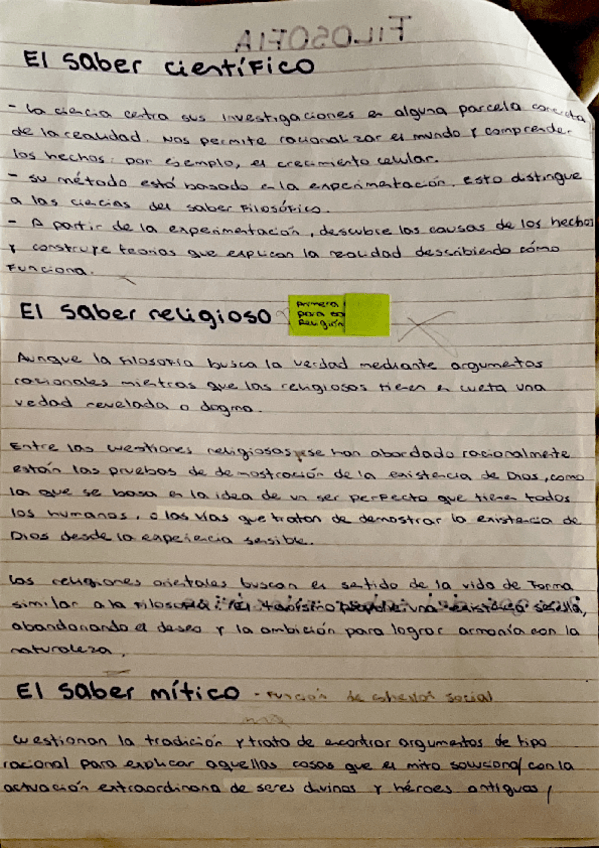 FILOSOFIA
El saber científico
- La ciencia centra sus investigaciones en alguna parcela concreta
de la realidad. Nos permite racionalizar el mundo y comprender
los hechos. por ejemplo, el crecimiento celular.
- su método está basado en la experimentación. esto distingue
a las ciencias del saber filosófico.
- A partir de la experimentación, descubre las causas de los hechos
y construye teorías que explican la realidad describiendo cómo
Funciona.
El saber religioso
primera
para
Religión
Aunque la filosofía busca la verdad mediante argumentos
racionales mientras que las religiosos tienen en cueta una
vedad revelada o dogma.
Entre las cuestiones religiosas, se han abordado racionalmente
están las pruebas de demostración de la existencia de Dios, como
la que se basa en la idea de un ser perfecto que tienen todos
los humanos, o las vías que tratan de demostrar la existencia de
Dios desde la experiencia sensible.
Las religiones orientales buscan el sentido de la vida de forma
similar a la filosofía: el taoísmo propone una existencia sencilla,
abandonando el deseo y la ambición para lograr armonía con la
naturaleza.
El saber mítico - Función de cohesión social
Cuestionan la tradición y trata de encontrar argumentos de tipo
racional para explicar aquellas cosas que el mito soluciona con la
actuación extraordinaria de seres divinos y héroes antiguos